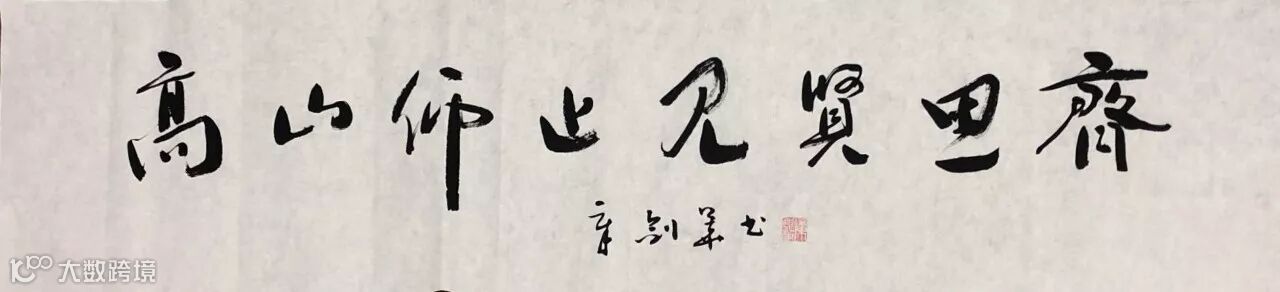 高山仰止见賢思齊
章剑华书
大数跨境